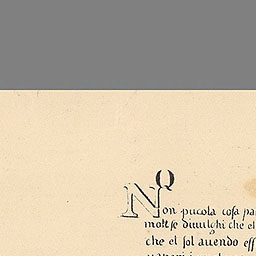 Q
Non piccola cosa pa
molt se diuulghi che el
che el sol auendo eff